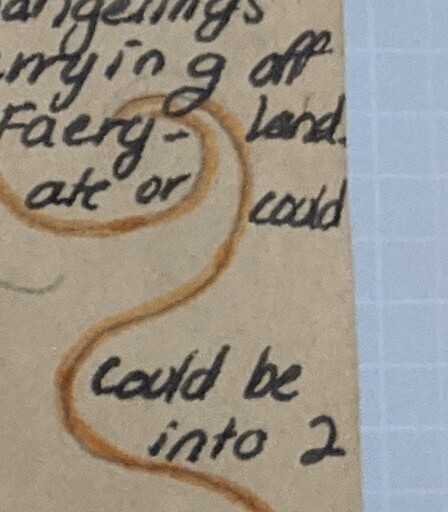 angelings
rrying off
Faery- land.
ate or could
could be
into 2